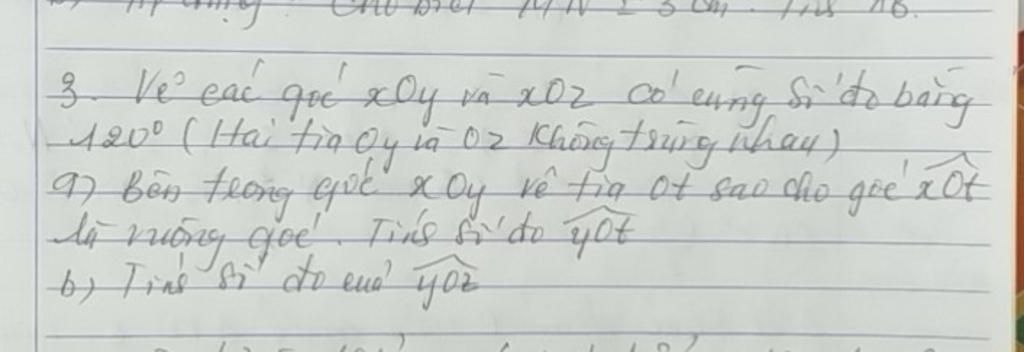 3. Vẽ các góc xOy và xOz có cùng số đo bằng
120° (Hai tia Oy và Oz không trùng nhau)
a) Bên trong góc xOy vẽ tia Ot sao cho góc xOt
là vuông góc. Tính số đo yOt
b) Tính số đo của yOz